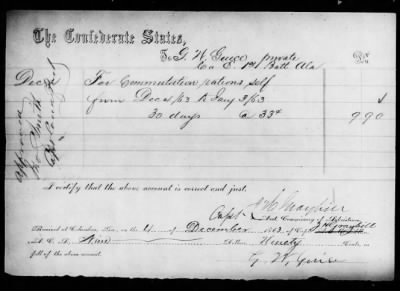 The Confederate States,
To G. W. Guice private Dr
Co E 1st Batt Ala
Dec 4 For Commutation rations self
from Dec 4/63 to Jany 3/63 $
30 days @ 33¢ 9 90
Approved
Smith
Capt
I certify that the above account is correct and just.
Capt
Asst Commissary of Subsistence
Received at Columbus, Geo, on the 4 of December 1863, of Capt
A. C. S., Nine Dollars Ninety Cents, in
full of the above account.
G. W. Guice